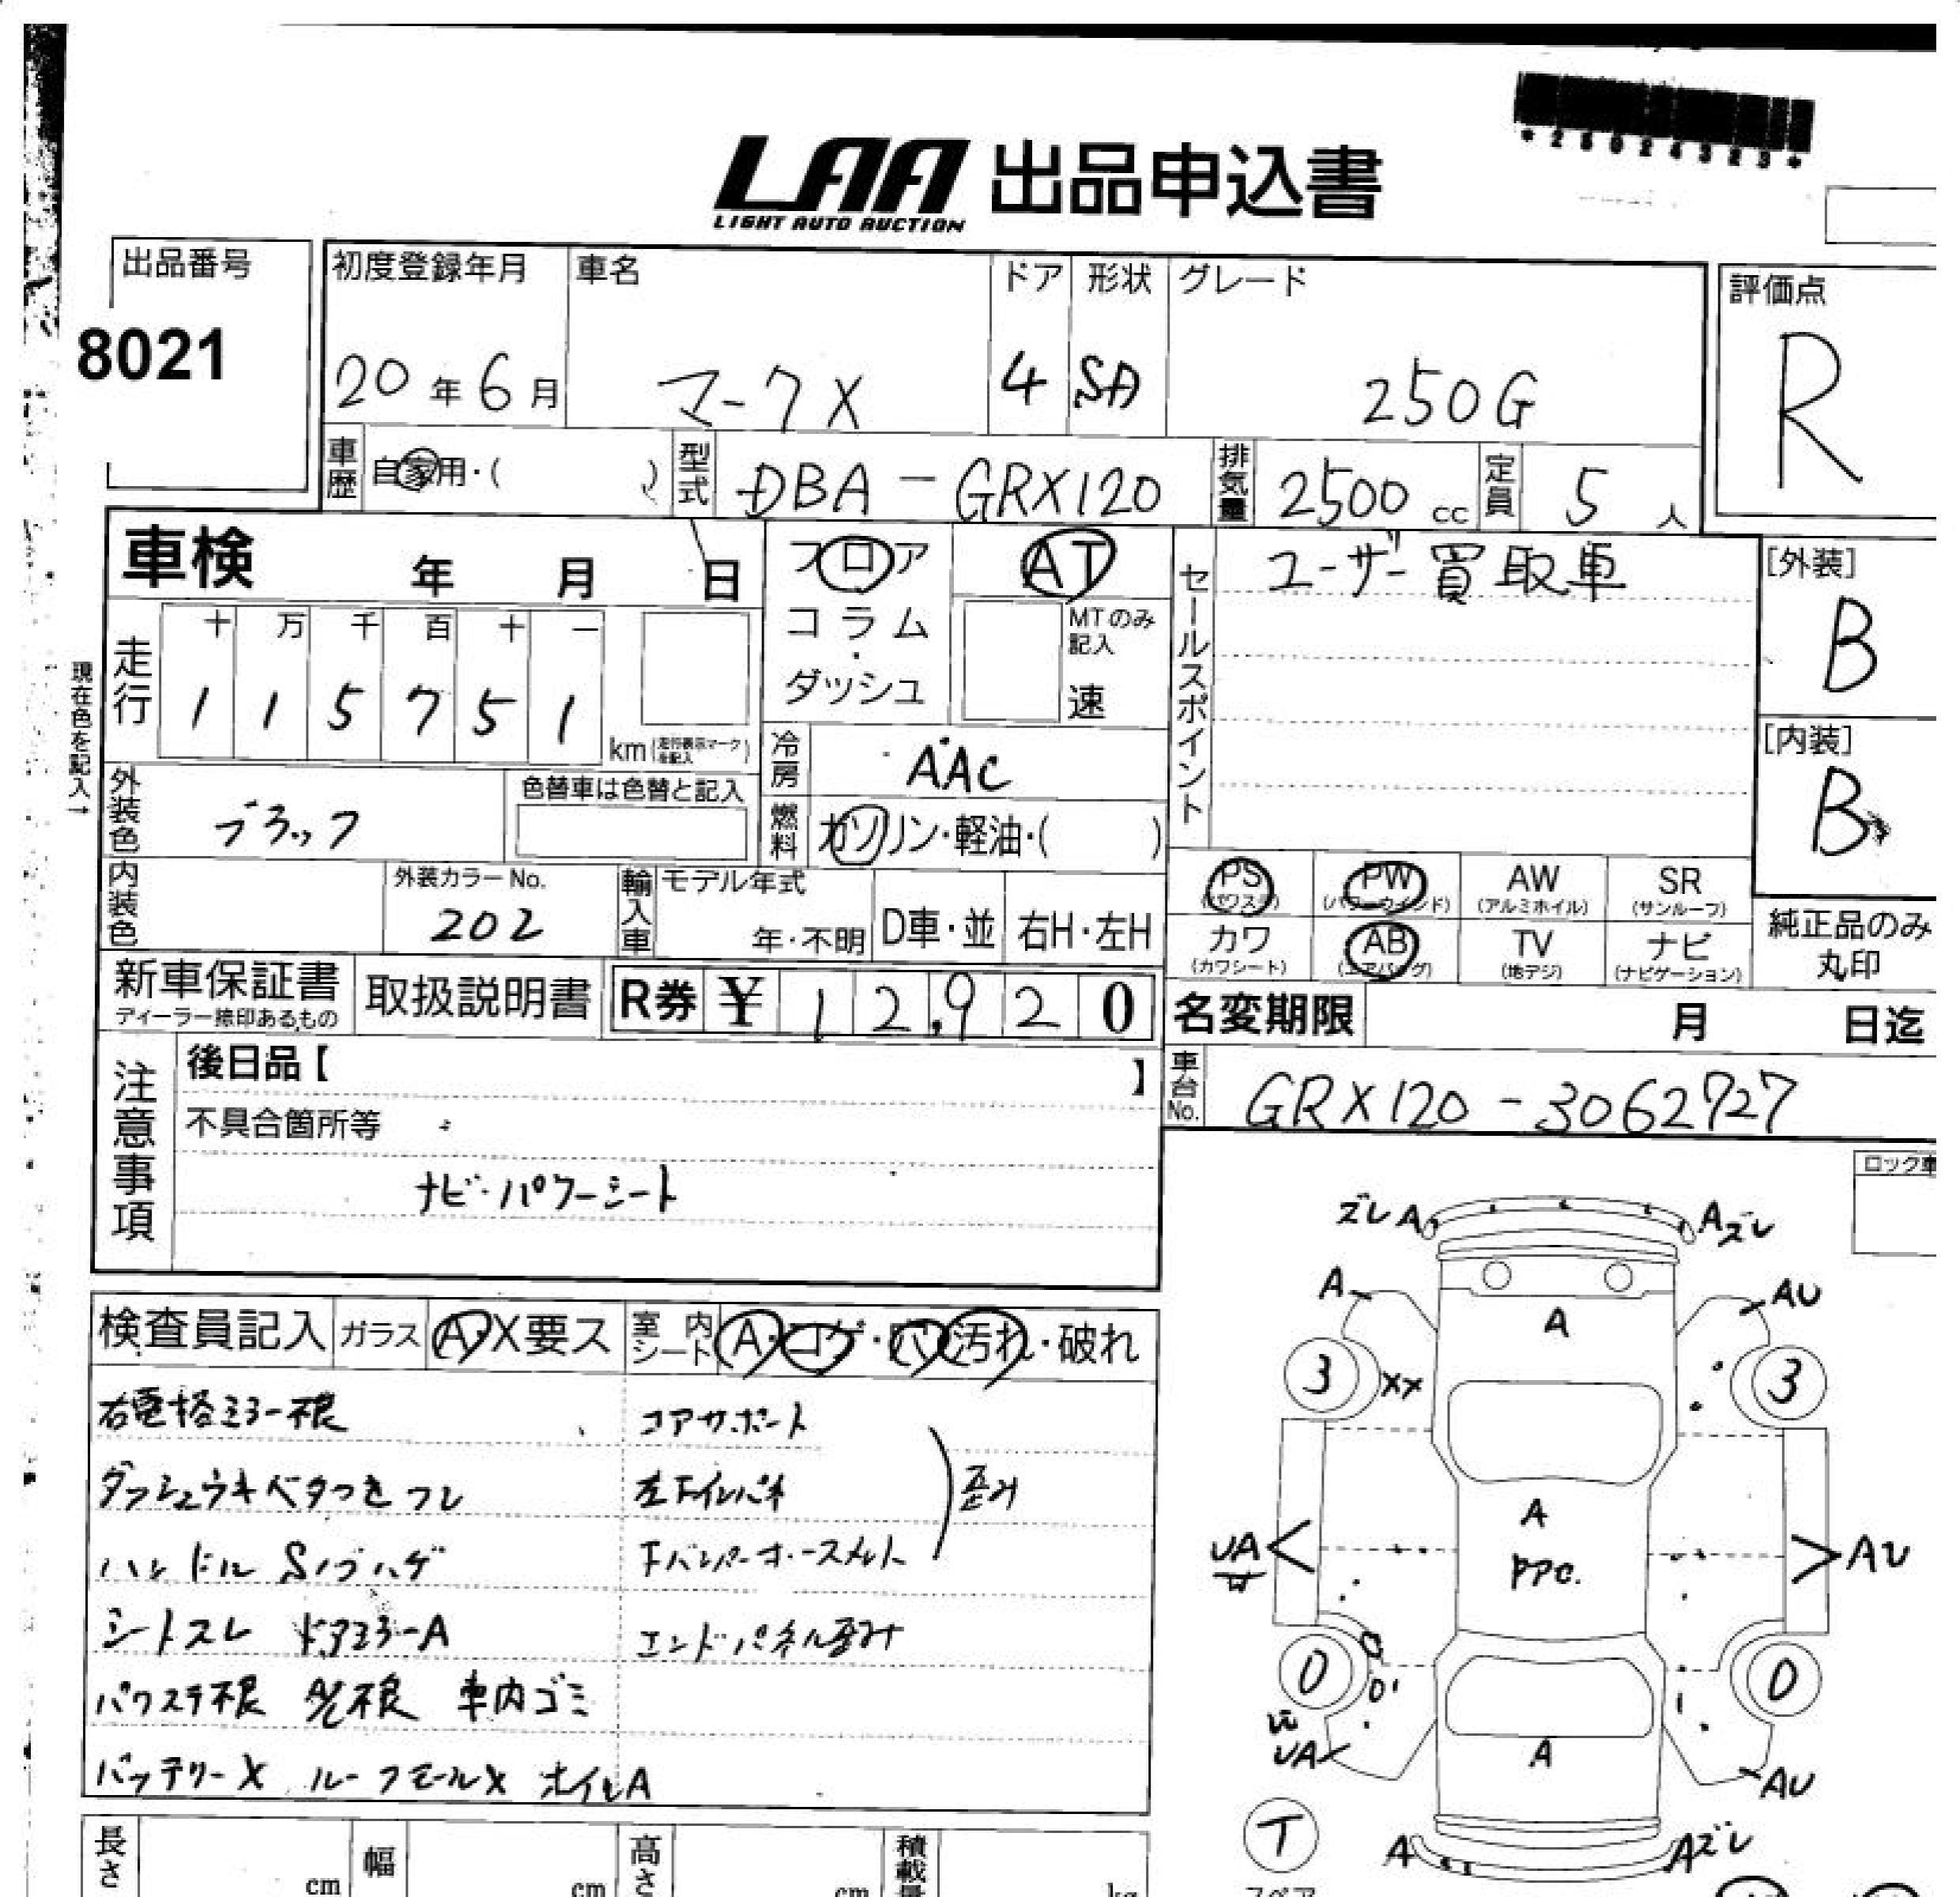 *25024323*
LAA 出品申込書
LIGHT AUTO AUCTION
出品番号
8021
初度登録年月
20年6月
車名
マークX
ドア
4
形状
SD
グレード
250G
評価点
R
車歴
自家用・( )
型式
DBA-GRX120
排気量
2500cc
定員
5人
車検 年 月 日
フロア
コラム
・
ダッシュ
AT
MTのみ
記入
速
セールスポイント
ユーザー買取車
[外装]
B
[内装]
B
現在色を記入→
走行
十 万 千 百 十 一
1 1 5 7 5 1
km(走行表示マークを記入)
冷房
AAC
外装色
ブラック
色替車は色替と記入
燃料
ガソリン・軽油・( )
内装色
外装カラーNo.
202
輸入車
モデル年式
年・不明
D車・並
右H・左H
PS
(パワステ)
PW
(パワーウインド)
AW
(アルミホイル)
SR
(サンルーフ)
カワ
(カワシート)
AB
(エアバッグ)
TV
(地デジ)
ナビ
(ナビゲーション)
純正品のみ
丸印
新車保証書
ディーラー捺印あるもの
取扱説明書
R券 ¥ 12,920
名変期限 月 日迄
注意事項
後日品【 】
不具合箇所等
ナビ・パワーシート
車台No.
GRX120-3062727
ロック車
検査員記入
ガラス
A・X要ス
室内シート
A・コゲ・穴・汚れ・破れ
右電格ミラー不良
コアサポート
ダッシュウキベタつきフレ
左下インパネ
歪み
ハンドル Sノブハゲ
下バンパーホースメント
シートスレ ドアミラーA
エンドパネル歪み
パワステ不良 A/C不良 車内ゴミ
バッテリーX ルーフモールX ホイルA
ズレ A
A ズレ
A
AU
A
3
XX
3
A
PPC.
UA
W
AU
0
0
W
UA
A
AU
T
A
Aズレ
スペア
長さ
cm
幅
cm
高さ
cm
積載量
kg